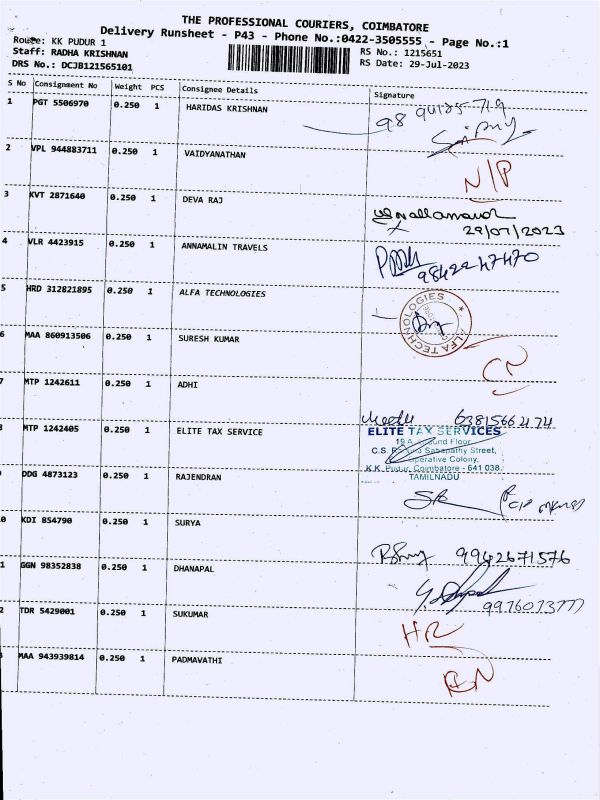 THE PROFESSIONAL COURIERS, COIMBATORE
Delivery Runsheet - P43 - Phone No.:0422-3505555 - Page No.:1
Route: KK PUDUR 1
RS No.: 1215651
Staff: RADHA KRISHNAN
RS Date: 29-Jul-2023
DRS No.: DCJB121565101
S No Consignment No Weight PCS Consignee Details Signature
1 PGT 5506970 0.250 1 HARIDAS KRISHNAN
2 VPL 944883711 0.250 1 VAIDYANATHAN N/P
3 KVT 2871640 0.250 1 DEVA RAJ
29/07/2023
4 VLR 4423915 0.250 1 ANNAMALIN TRAVELS 9842247470
5 HRD 312821895 0.250 1 ALFA TECHNOLOGIES
ALFA TECHNOLOGIES
6 MAA 860913506 0.250 1 SURESH KUMAR CN
7 MTP 1242611 0.250 1 ADHI
8 MTP 1242405 0.250 1 ELITE TAX SERVICE
ELITE TAX SERVICES
19 A, Ground Floor,
C.S. Sabapathy Street,
Operative Colony,
K.K. Pudur, Coimbatore - 641 038.
TAMILNADU
9 DDG 4873123 0.250 1 RAJENDRAN
0 KDI 854790 0.250 1 SURYA 9942671576
1 GGN 98352838 0.250 1 DHANAPAL
2 TDR 5429001 0.250 1 SUKUMAR HR
MAA 943939814 0.250 1 PADMAVATHI